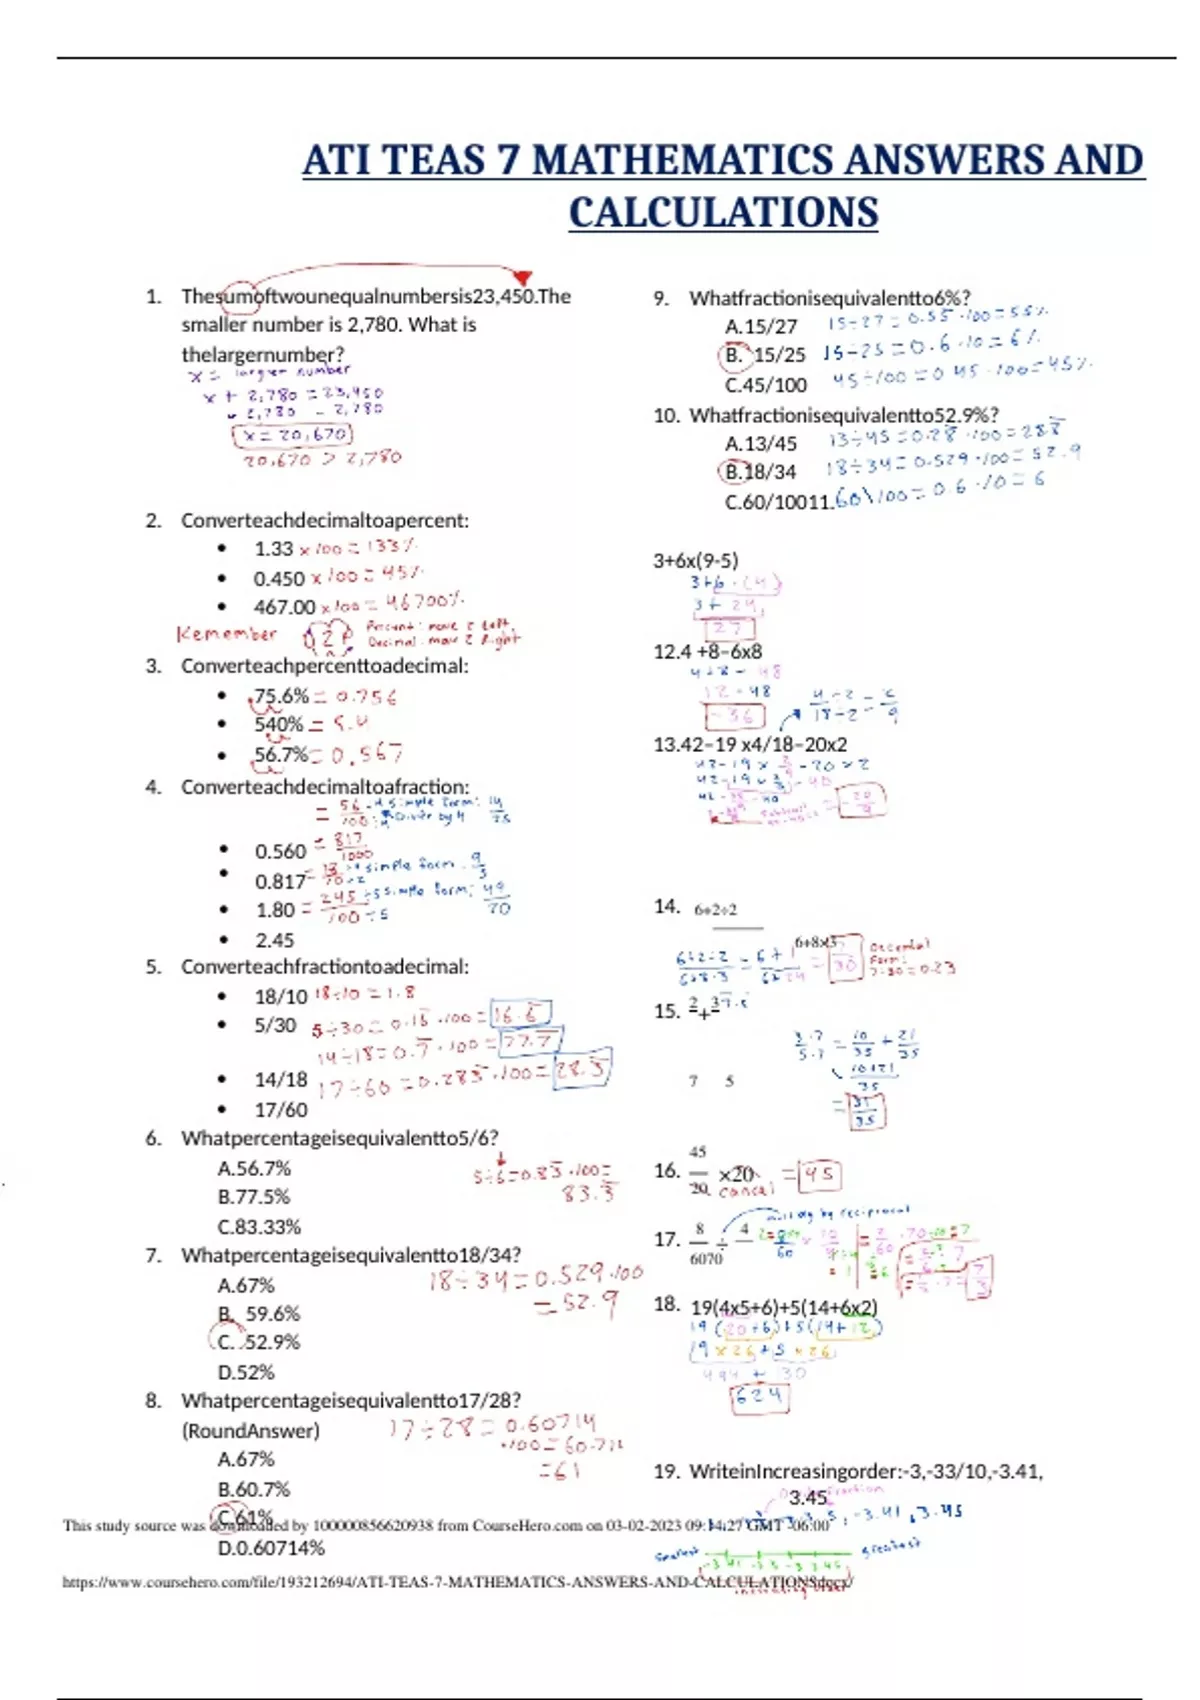 ATI TEAS 7 MATHEMATICS ANSWERS AND
CALCULATIONS
1. Thesumoftwounequalnumbersis23,450.The
smaller number is 2,780. What is
thelargernumber?
x = larger number
x + 2,780 = 23,450
- 2,780 - 2,780
x = 20,670
20,670 > 2,780
2. Converteachdecimaltoapercent:
• 1.33 x100 = 133%
• 0.450 x100 = 45%
• 467.00 x100 = 46700%
Remember Percent: move 2 Left
Decimal: move 2 Right
3. Converteachpercenttoadecimal:
• 75.6% = 0.756
• 540% = 5.4
• 56.7% = 0.567
4. Converteachdecimaltoafraction:
= 56/100 simple form: 14/25
Divide by 4
• 0.560 = 817/1000
• 0.817 simple form 9/5
• 1.80 = 245÷5/100÷5 simple form: 49/20
• 2.45
5. Converteachfractiontoadecimal:
• 18/10 18÷10 = 1.8
• 5/30 5÷30 = 0.16 ·100 = 16.6
14÷18 = 0.7 ·100 = 77.7
• 14/18 17÷60 = 0.283 ·100 = 28.3
• 17/60
6. Whatpercentageisequivalentto5/6?
A.56.7% 5÷6=0.83 ·100=
B.77.5% 83.3
C.83.33%
7. Whatpercentageisequivalentto18/34?
A.67% 18÷34=0.529·100
B. 59.6% = 52.9
C. 52.9%
D.52%
8. Whatpercentageisequivalentto17/28?
(RoundAnswer) 17÷28=0.60714
·100=60.714
A.67% =61
B.60.7%
C.61%
D.0.60714%
9. Whatfractionisequivalentto6%?
A.15/27 15÷27=0.55 ·100=55%
B. 15/25 15÷25=0.6·10=6%
C.45/100 45÷100=0.45 ·100=45%
10. Whatfractionisequivalentto52.9%?
A.13/45 13÷45=0.28 ·100=28.8
B.18/34 18÷34=0.529·100=52.9
C.60/10011. 60\100=0.6·10=6
3+6x(9-5)
3+6·(4)
3+24
27
12.4 +8–6x8
4+8-48
12-48
-36
4÷2/18÷2=2/9
13.42–19 x4/18–20x2
42-19x2/9-20x2
14. 6+2÷2
6+8x3
6+2÷2/6+8·3 = 6+1/6+24 = 7/30 Decimal
Form:
7÷30=0.23
15. 2+3
7 5
= 10/35 + 21/35
10+21/35
= 31/35
16. 45
20 x20 = 45
cancel
multiply by reciprocal
17. 8 ÷ 4
6070
7/3
18. 19(4x5+6)+5(14+6x2)
19(20+6)+5(14+12)
19x26+5x26
494 + 130
624
19. WriteinIncreasingorder:-3,-33/10,-3.41,
3.45
-3.41, 3.45
smallest greatest
increasing order
This study source was downloaded by 100000856620938 from CourseHero.com on 03-02-2023 09:14:27 GMT -06:00
https://www.coursehero.com/file/193212694/ATI-TEAS-7-MATHEMATICS-ANSWERS-AND-CALCULATIONSdocx/